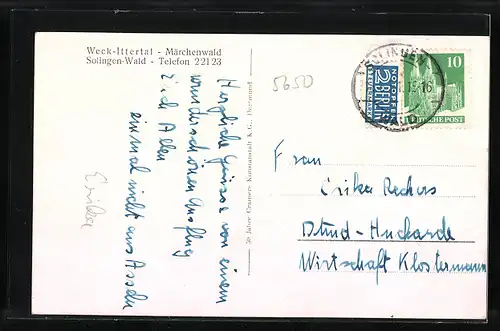 Weck-Ittertal - Märchenwald
Solingen-Wald - Telefon 22123
Herzliche Grüsse von einem
wunderschönen Ausflug
Euch Allen
einmal nicht aus Asseln
Erika
50 Jahre Cramers Kunstanstalt K.G., Dortmund
5650
SOLINGEN
NOTOPFER
2 BERLIN
STEUERMARKE
10
DEUTSCHE POST
Frau
Erika Rechers
Dtmd-Huckarde
Wirtschaft Klostermann